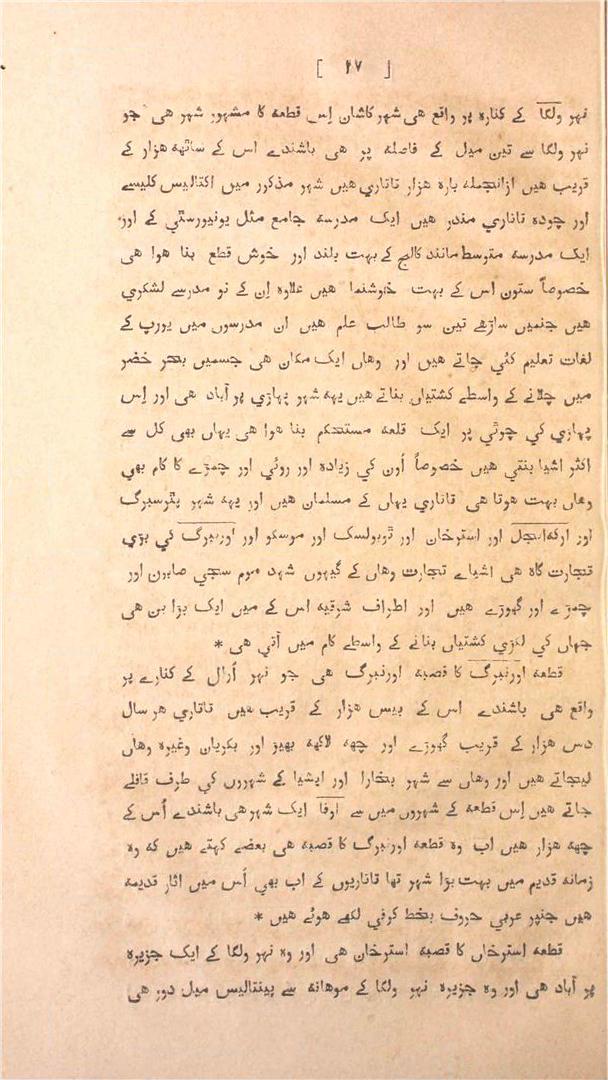 [ ۲۷ ]
نہر ولگا کے کنارہ پر واقع هی شہر کاشان اِس قطعه کا مشہور شہر هی جو
نہر ولگا سے تین میل کے فاصله پر هی باشندے اس کے ساٹهه هزار کے
قریب هیں ازانجمله بارہ هزار تاتاري هیں شہر مذکور میں اکتالیس کلیسے
اور چودہ تاتاري مندر هیں ایک مدرسه جامع مثل یونیورسٹي کے اور
ایک مدرسه متوسط مانند کالج کے بہت بلند اور خوش قطع بنا هوا هی
خصوصاً ستون اس کے بہت خوشنما هیں علاوہ اِن کے نو مدرسے لشکري
هیں جنمیں ساڑهے تین سو طالب علم هیں ان مدرسوں میں یورپ کے
لغات تعلیم کئي جاتے هیں اور وهاں ایک مکان هی جسمیں بحر خضر
میں چلانے کے واسطے کشتیاں بناتے هیں یهه شہر پہاڑي پر آباد هی اور اِس
پہاڑي کي چوٹي پر ایک قلعه مستحکم بنا هوا هی یہاں بهی کل سے
اکثر اشیا بنتي هیں خصوصاً اُون کي زیادہ اور روئي اور چمڑے کا کام بهي
وهاں بہت هوتا هی تاتاري یہاں کے مسلمان هیں اور یهه شہر پٹرسبرگ
اور ارکهانجل اور استرخان اور ٹوبولسک اور موسکو اور اورنبرگ کي بڑي
تجارت گاہ هی اشیاے تجارت وهاں کے گیہوں شہد موم سنجي صابون اور
چمڑے اور گهوڑے هیں اور اطراف شرقیه اس کے میں ایک بڑا بن هی
جہاں کي لکڑي کشتیاں بنانے کے واسطے کام میں آتي هی *
قطعه اورنبرگ کا قصبه اورنبرگ هی جو نہر اُرال کے کنارے پر
واقع هی باشندے اس کے بیس هزار کے قریب هیں تاتاري هر سال
دس هزار کے قریب گهوڑے اور چهه لاکهه بهیڑ اور بکریاں وغیرہ وهاں
لیجاتے هیں اور وهاں سے شہر بخارا اور ایشیا کے شہروں کي طرف قافلے
جاتے هیں اِس قطعه کے شہروں میں سے اوفا ایک شہر هی باشندے اُس کے
چهه هزار هیں اب وہ قطعه اورنبرگ کا قصبه هی بعضے کہتے هیں که وہ
زمانه قدیم میں بہت بڑا شہر تها تاتاریوں کے اب بهي اُس میں اثار قدیمه
هیں جنپر عربي حروف بخط کرفي لکهے هوئے هیں *
قطعه استرخاں کا قصبه استرخان هی اور وہ نہر ولگا کے ایک جزیرہ
پر آباد هی اور وہ جزیرہ نہر ولگا کے موهانه سے پینتالیس میل دور هی